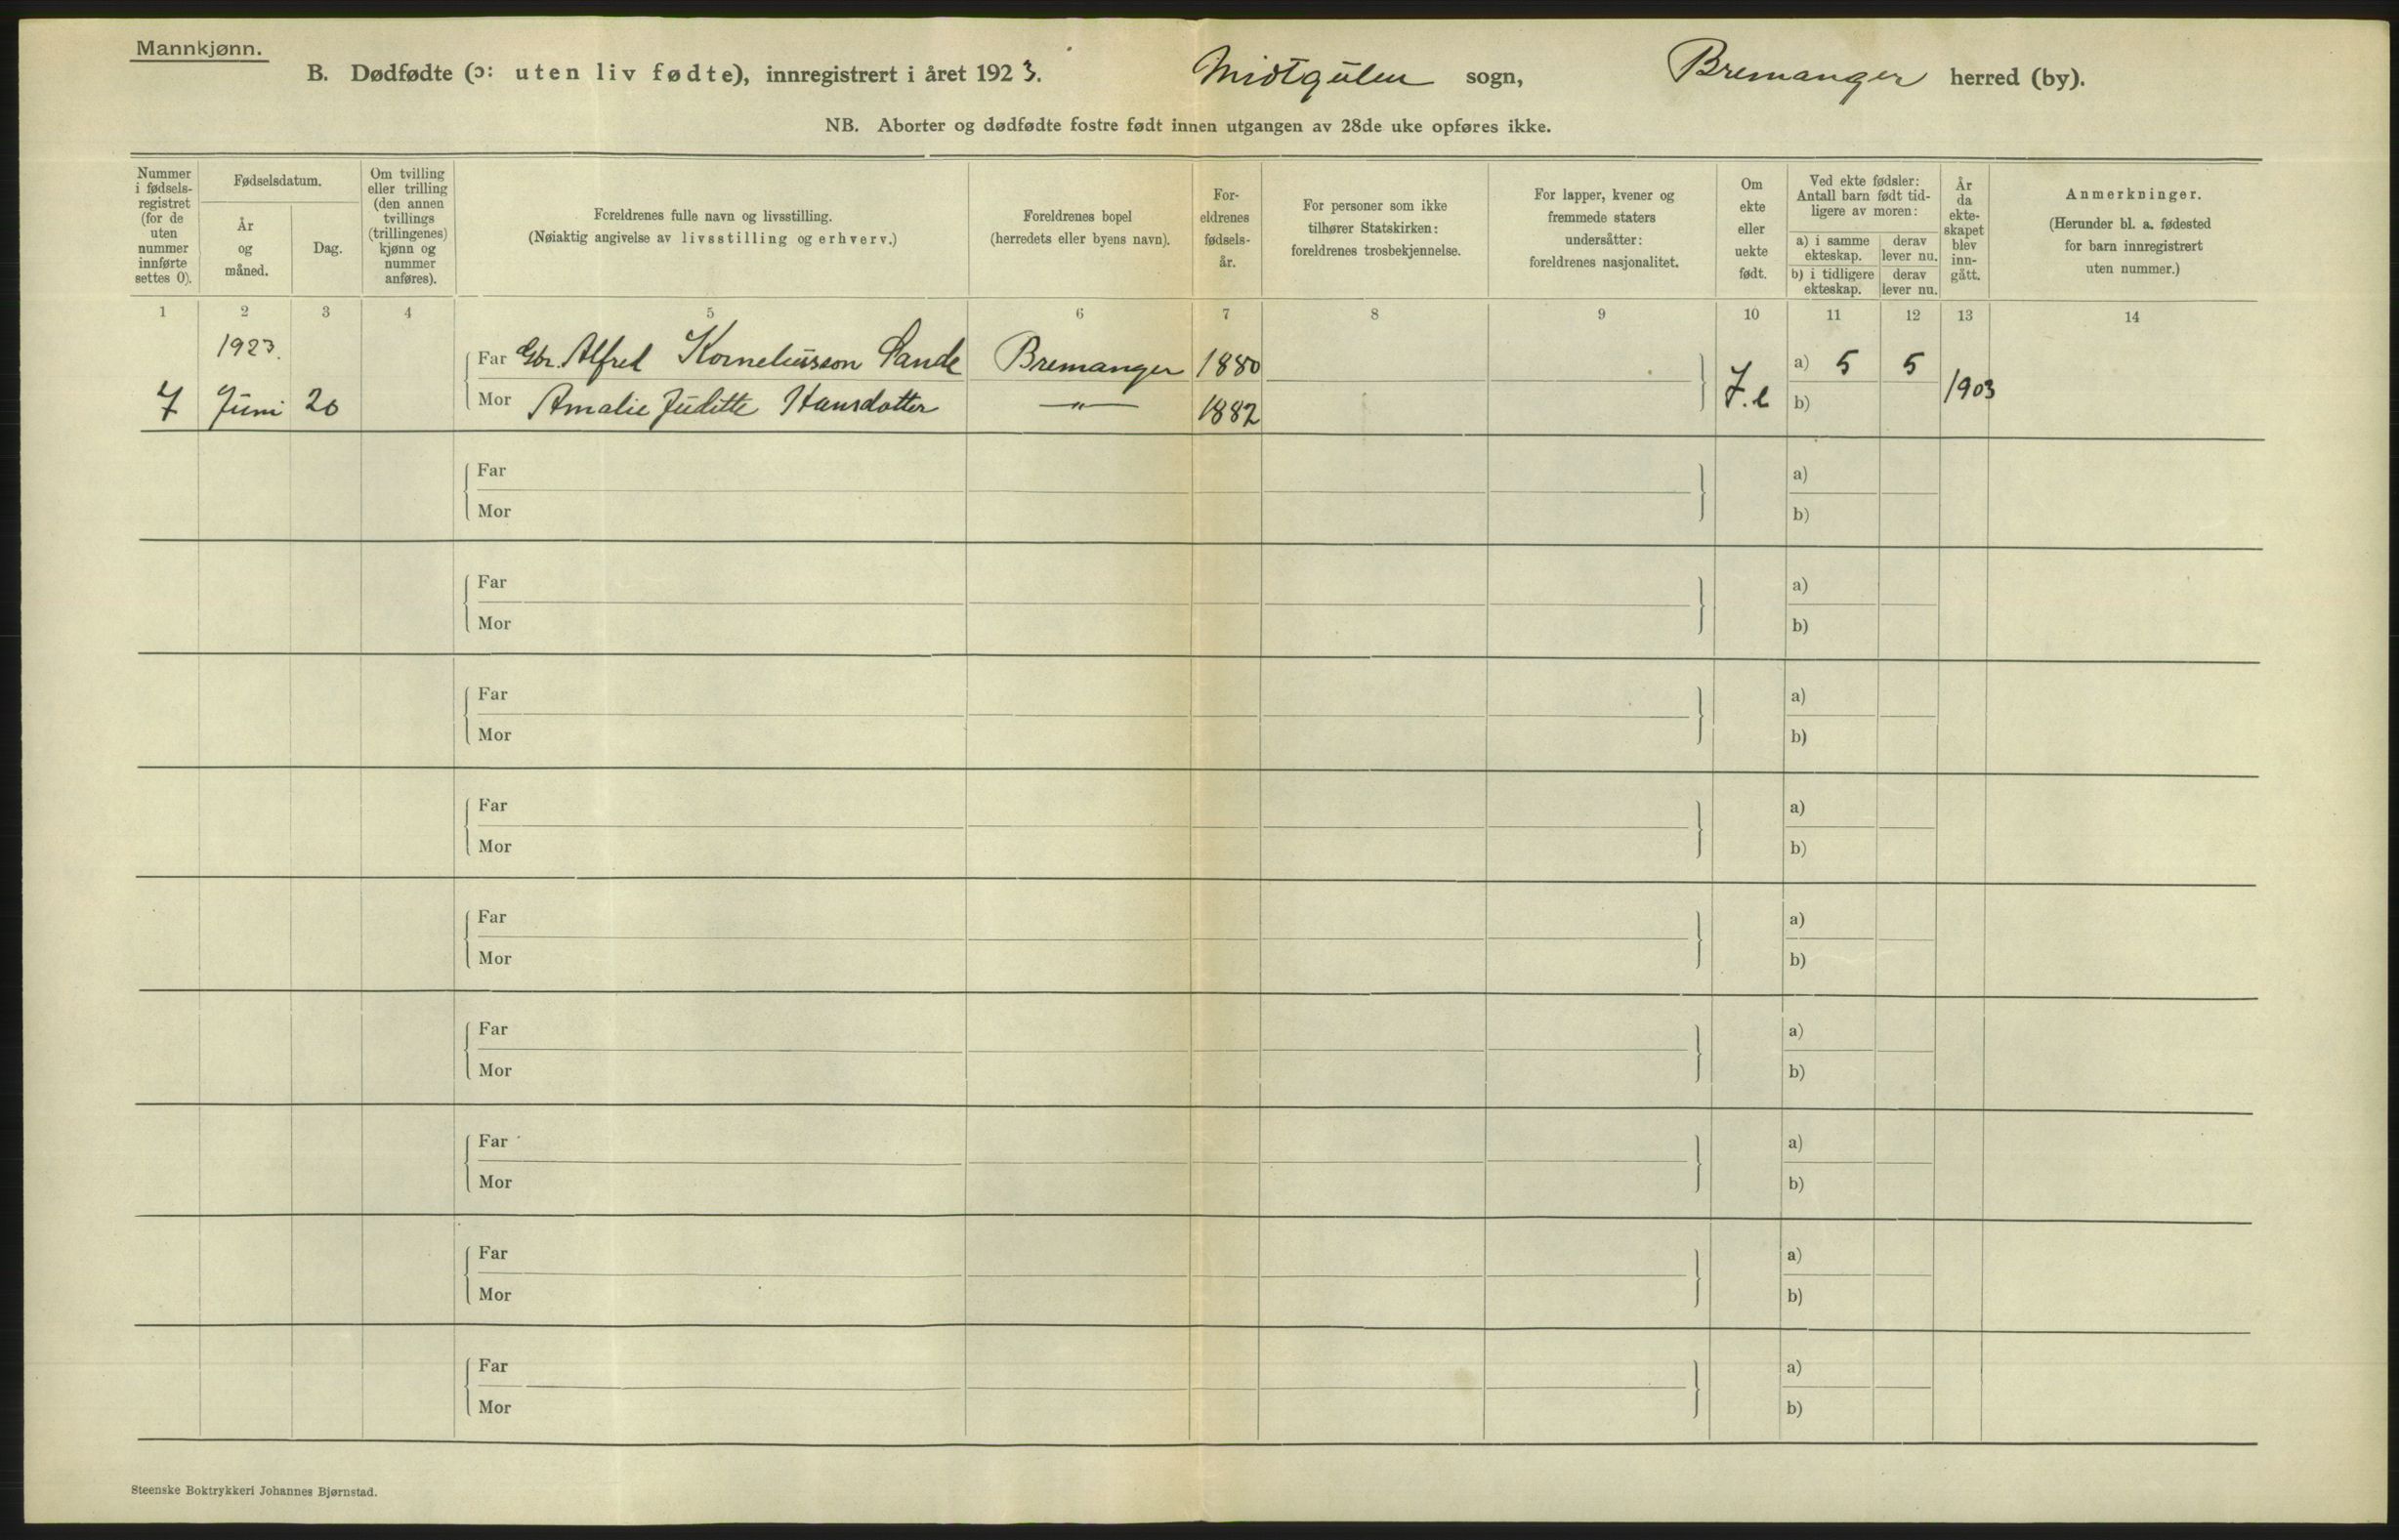 Mannkjønn.
B. Dødfødte (ɔ: uten liv fødte), innregistrert i året 1923. Midtgulen sogn, Bremanger herred (by).
NB. Aborter og dødfødte fostre født innen utgangen av 28de uke opføres ikke.
Nummer i fødsels-registret (for de uten nummer innførte settes 0).
Fødselsdatum.
År og måned.
Dag.
Om tvilling eller trilling (den annen tvillings (trillingenes) kjønn og nummer anføres).
Foreldrenes fulle navn og livsstilling.
(Nøiaktig angivelse av livsstilling og erhverv.)
Foreldrenes bopel
(herredets eller byens navn).
For-eldrenes fødsels-år.
For personer som ikke tilhører Statskirken: foreldrenes trosbekjennelse.
For lapper, kvener og fremmede staters undersåtter: foreldrenes nasjonalitet.
Om ekte eller uekte født.
Ved ekte fødsler: Antall barn født tid-ligere av moren:
a) i samme ekteskap.
derav lever nu.
b) i tidligere ekteskap.
derav lever nu.
År da ekte-skapet blev inn-gått.
Anmerkninger.
(Herunder bl. a. fødested for barn innregistrert uten nummer.)
1 2 3 4 5 6 7 8 9 10 11 12 13 14
1923.
Far Gbr. Alfred Korneliusson Sande Bremanger 1880 a) 5 5
7 Juni 20 Mor Amalie Juditte Hansdotter —"— 1882 F.e b) 1903
Far a)
Mor b)
Far a)
Mor b)
Far a)
Mor b)
Far a)
Mor b)
Far a)
Mor b)
Far a)
Mor b)
Far a)
Mor b)
Far a)
Mor b)
Far a)
Mor b)
Steenske Boktrykkeri Johannes Bjørnstad.